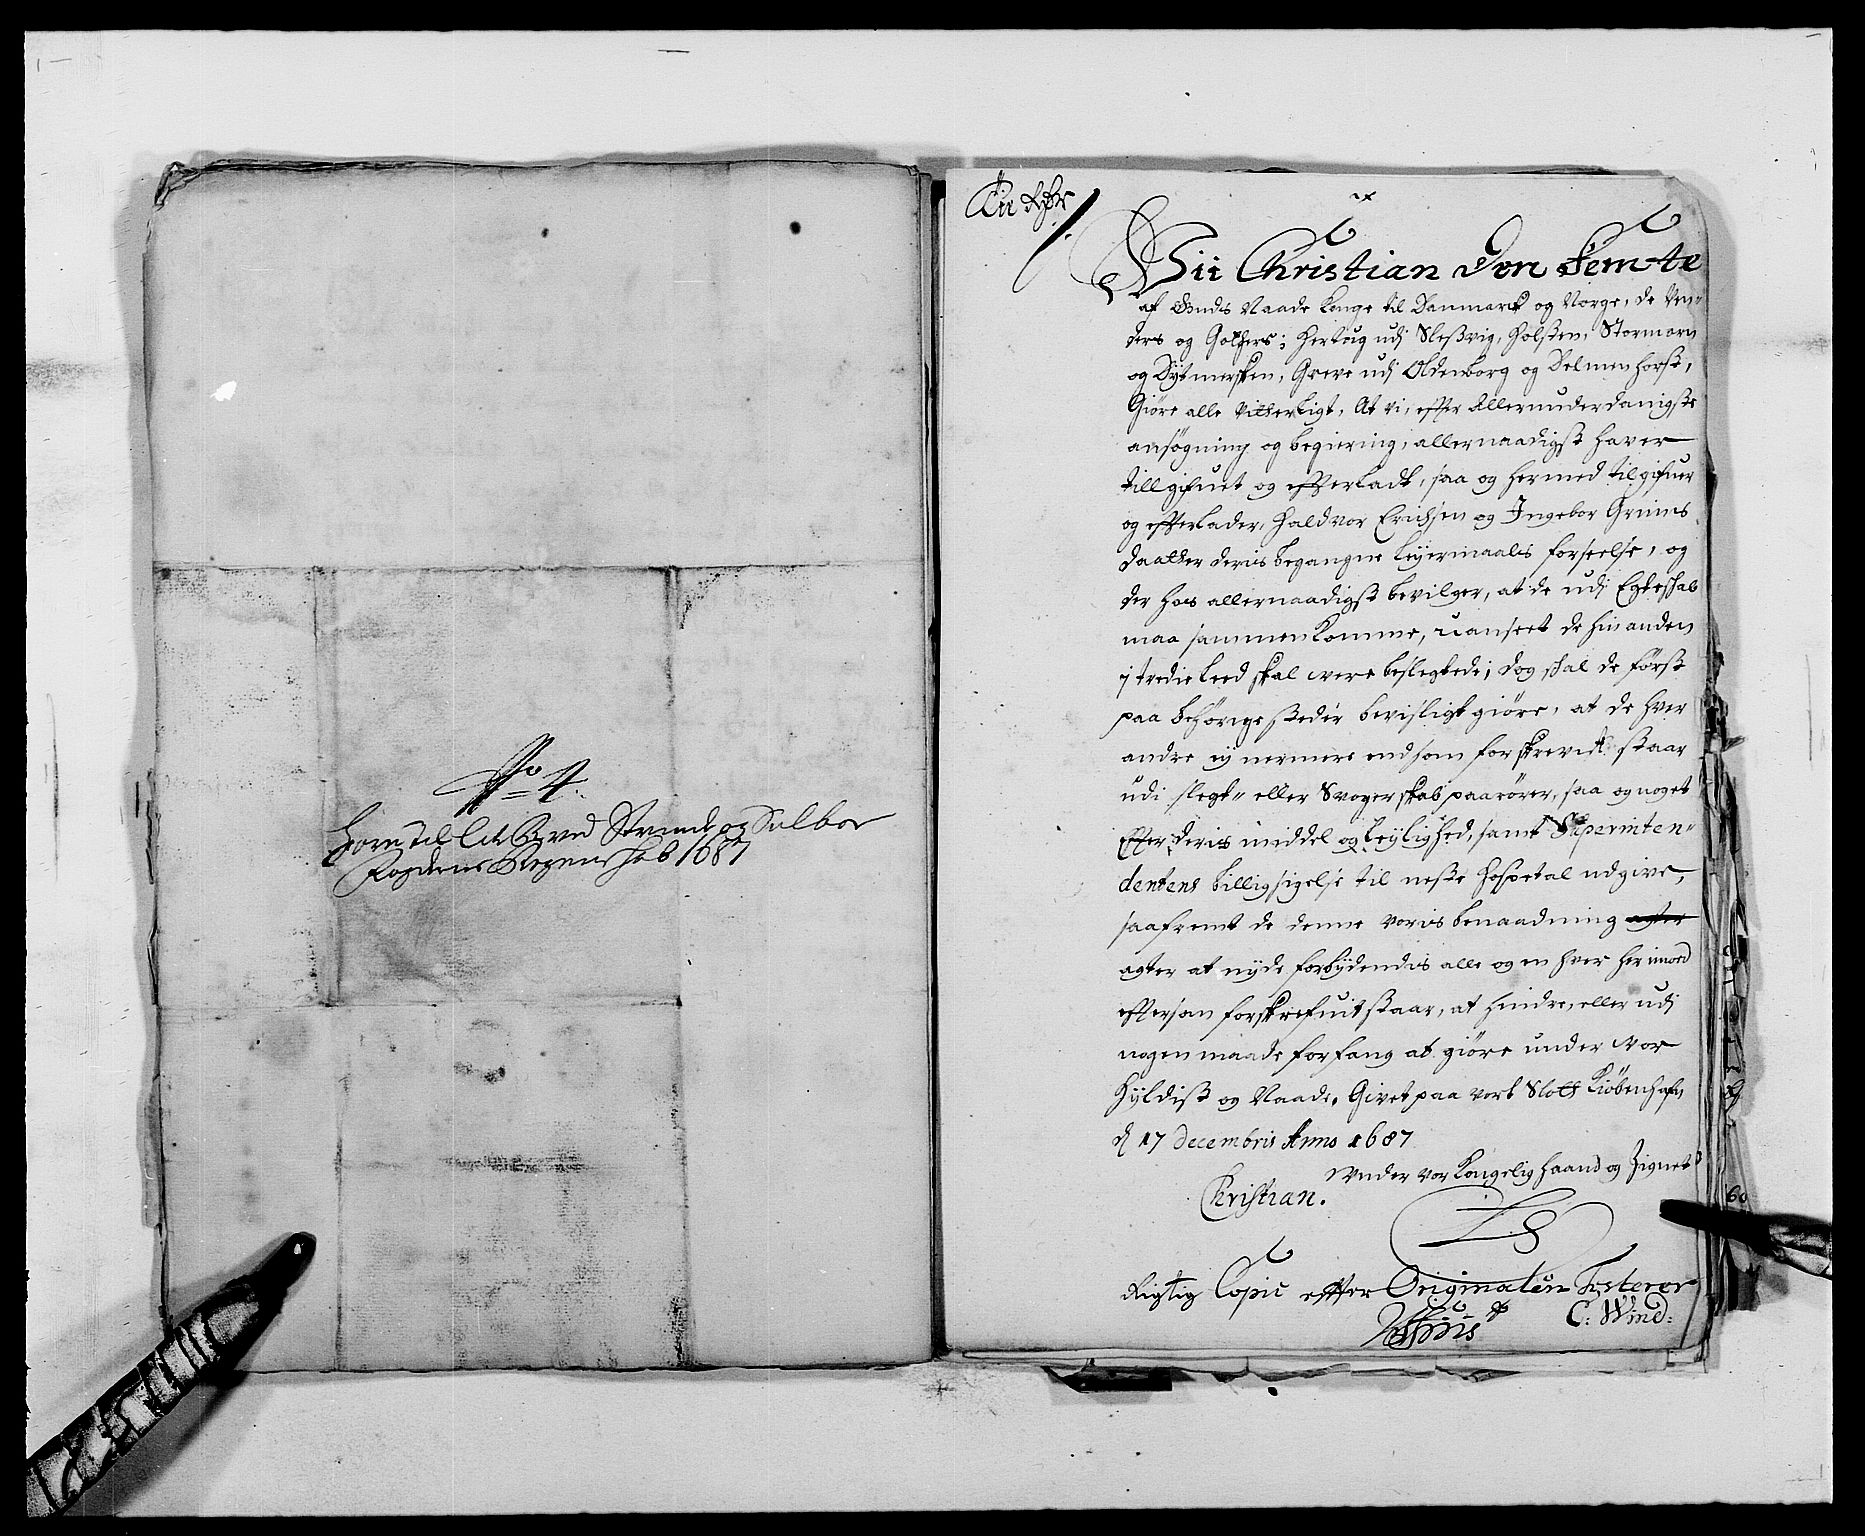 No 4.
Hører til Lit B ved Strinde og Sælboe
Fogderies Regenschab 1687
Vii Christian Den Femte
af Guds Naade Konge til Danmarck og Norge, de Ven-
ders og Gothers; Hertug udj Sleßvig, Holsten, Stormarn
og Dytmersken, Greve udj Oldenborg og Delmenhorst,
Giøre alle vitterligt, At vi, effter Allerunderdanigste
ansøgning og begiering, allernaadigst haver
tillgifuet og effterladt, saa og hermed tilgifuer
og effterlader, Haldvor Erichsen og Ingebor Grims
daatter deris begangne leyermaals forseelse, og
der hos allernaadigst bevilger, at de udj Egteskab
maa sammenkomme, uanseet de hinanden
j tredie leed skal vere beslegtede; dog skal de først
paa behørige steder bevisligt giøre, at de hver
andre ej nermere end som forskrevit staar
udi slegt- eller Svogerskab paarører, saa og noget
Effter deris middel og leylighed, samt Superinten-
dentens billigsigelse til neste Hospetal udgive,
saafremt de denne voris benaadning agter
agter at nyde forbydendis alle og en hver her imod
eftersom forskrefuit staar, at hindre, eller udj
nogen maade forfang at giøre under vor
Hyldist og Naade, Givet paa vort Slott Kiøbenhafn
d 17 decembris Anno 1687
Under vor Kongelig Haand og Zignet
Christian.
L S
Rigtig Copie effter Originalen Testerer
C: Wind: